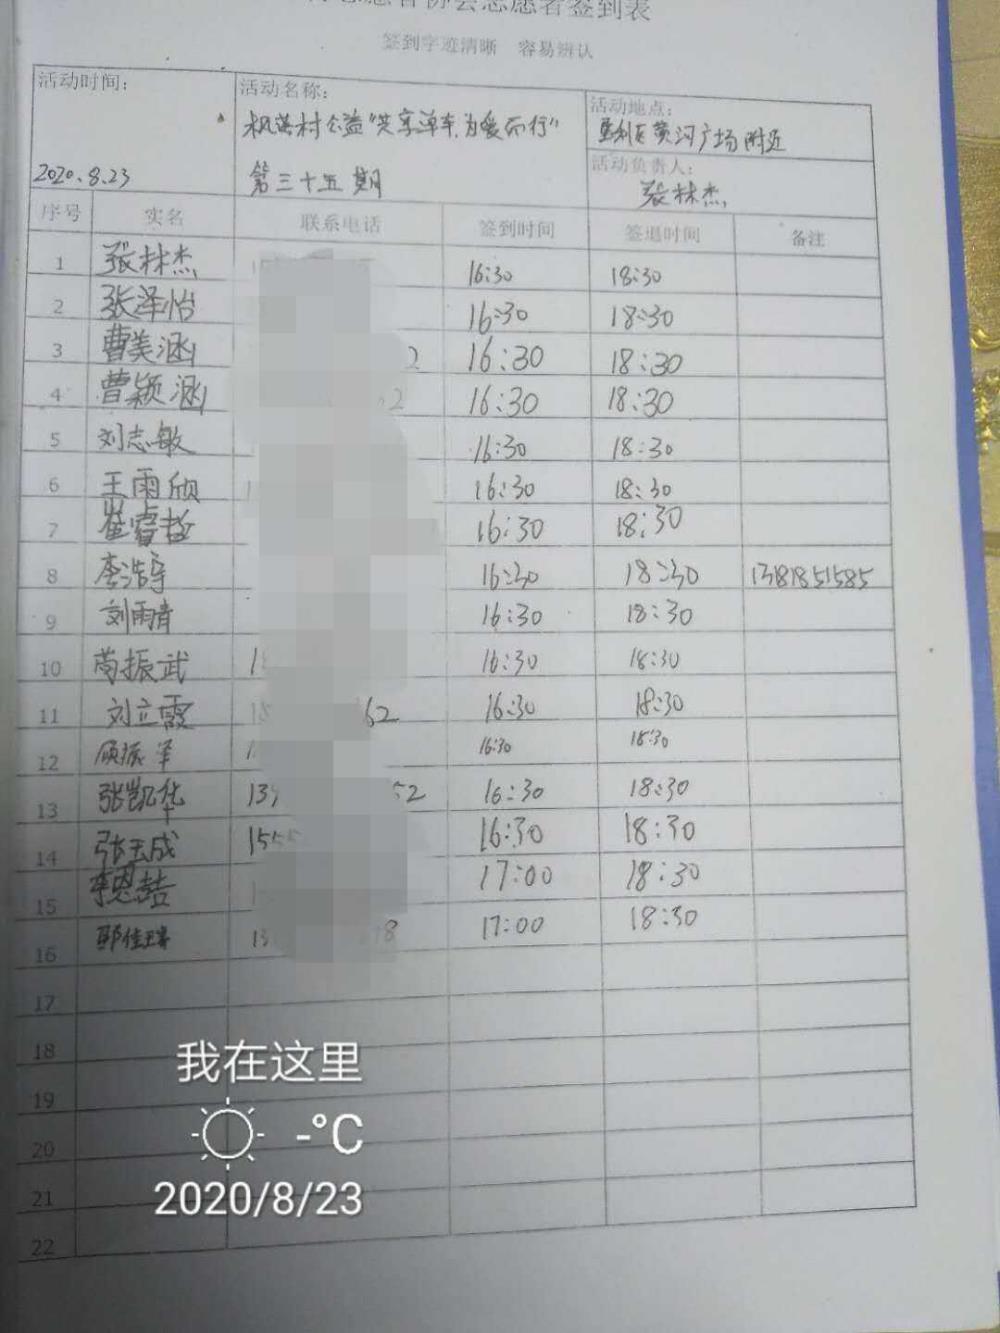 协会志愿者签到表
签到字迹清晰 容易辨认
活动时间: 活动名称: 活动地点:
公益"共享单车,为爱而行" 垦利区黄河广场附近
2020.8.23 第三十五期 活动负责人:
张林杰
序号 实名 联系电话 签到时间 签退时间 备注
1 张林杰 16:30 18:30
2 张泽怡 16:30 18:30
3 曹美涵 2 16:30 18:30
4 曹颖涵 62 16:30 18:30
5 刘志敏 16:30 18:30
6 王雨欣 16:30 18:30
7 崔睿哲 16:30 18:30
8 李浩宇 16:30 18:30 13181851585
9 刘雨青 16:30 18:30
10 苟振武 1 16:30 18:30
11 刘立霞 15 62 16:30 18:30
12 顾振泽 1 16:30 18:30
13 张凯华 139 52 16:30 18:30
14 张玉成 155 16:30 18:30
15 李恩喆 17:00 18:30
16 佳 13 98 17:00 18:30
17
18
19
20
21
22
我在这里
-°C
2020/8/23